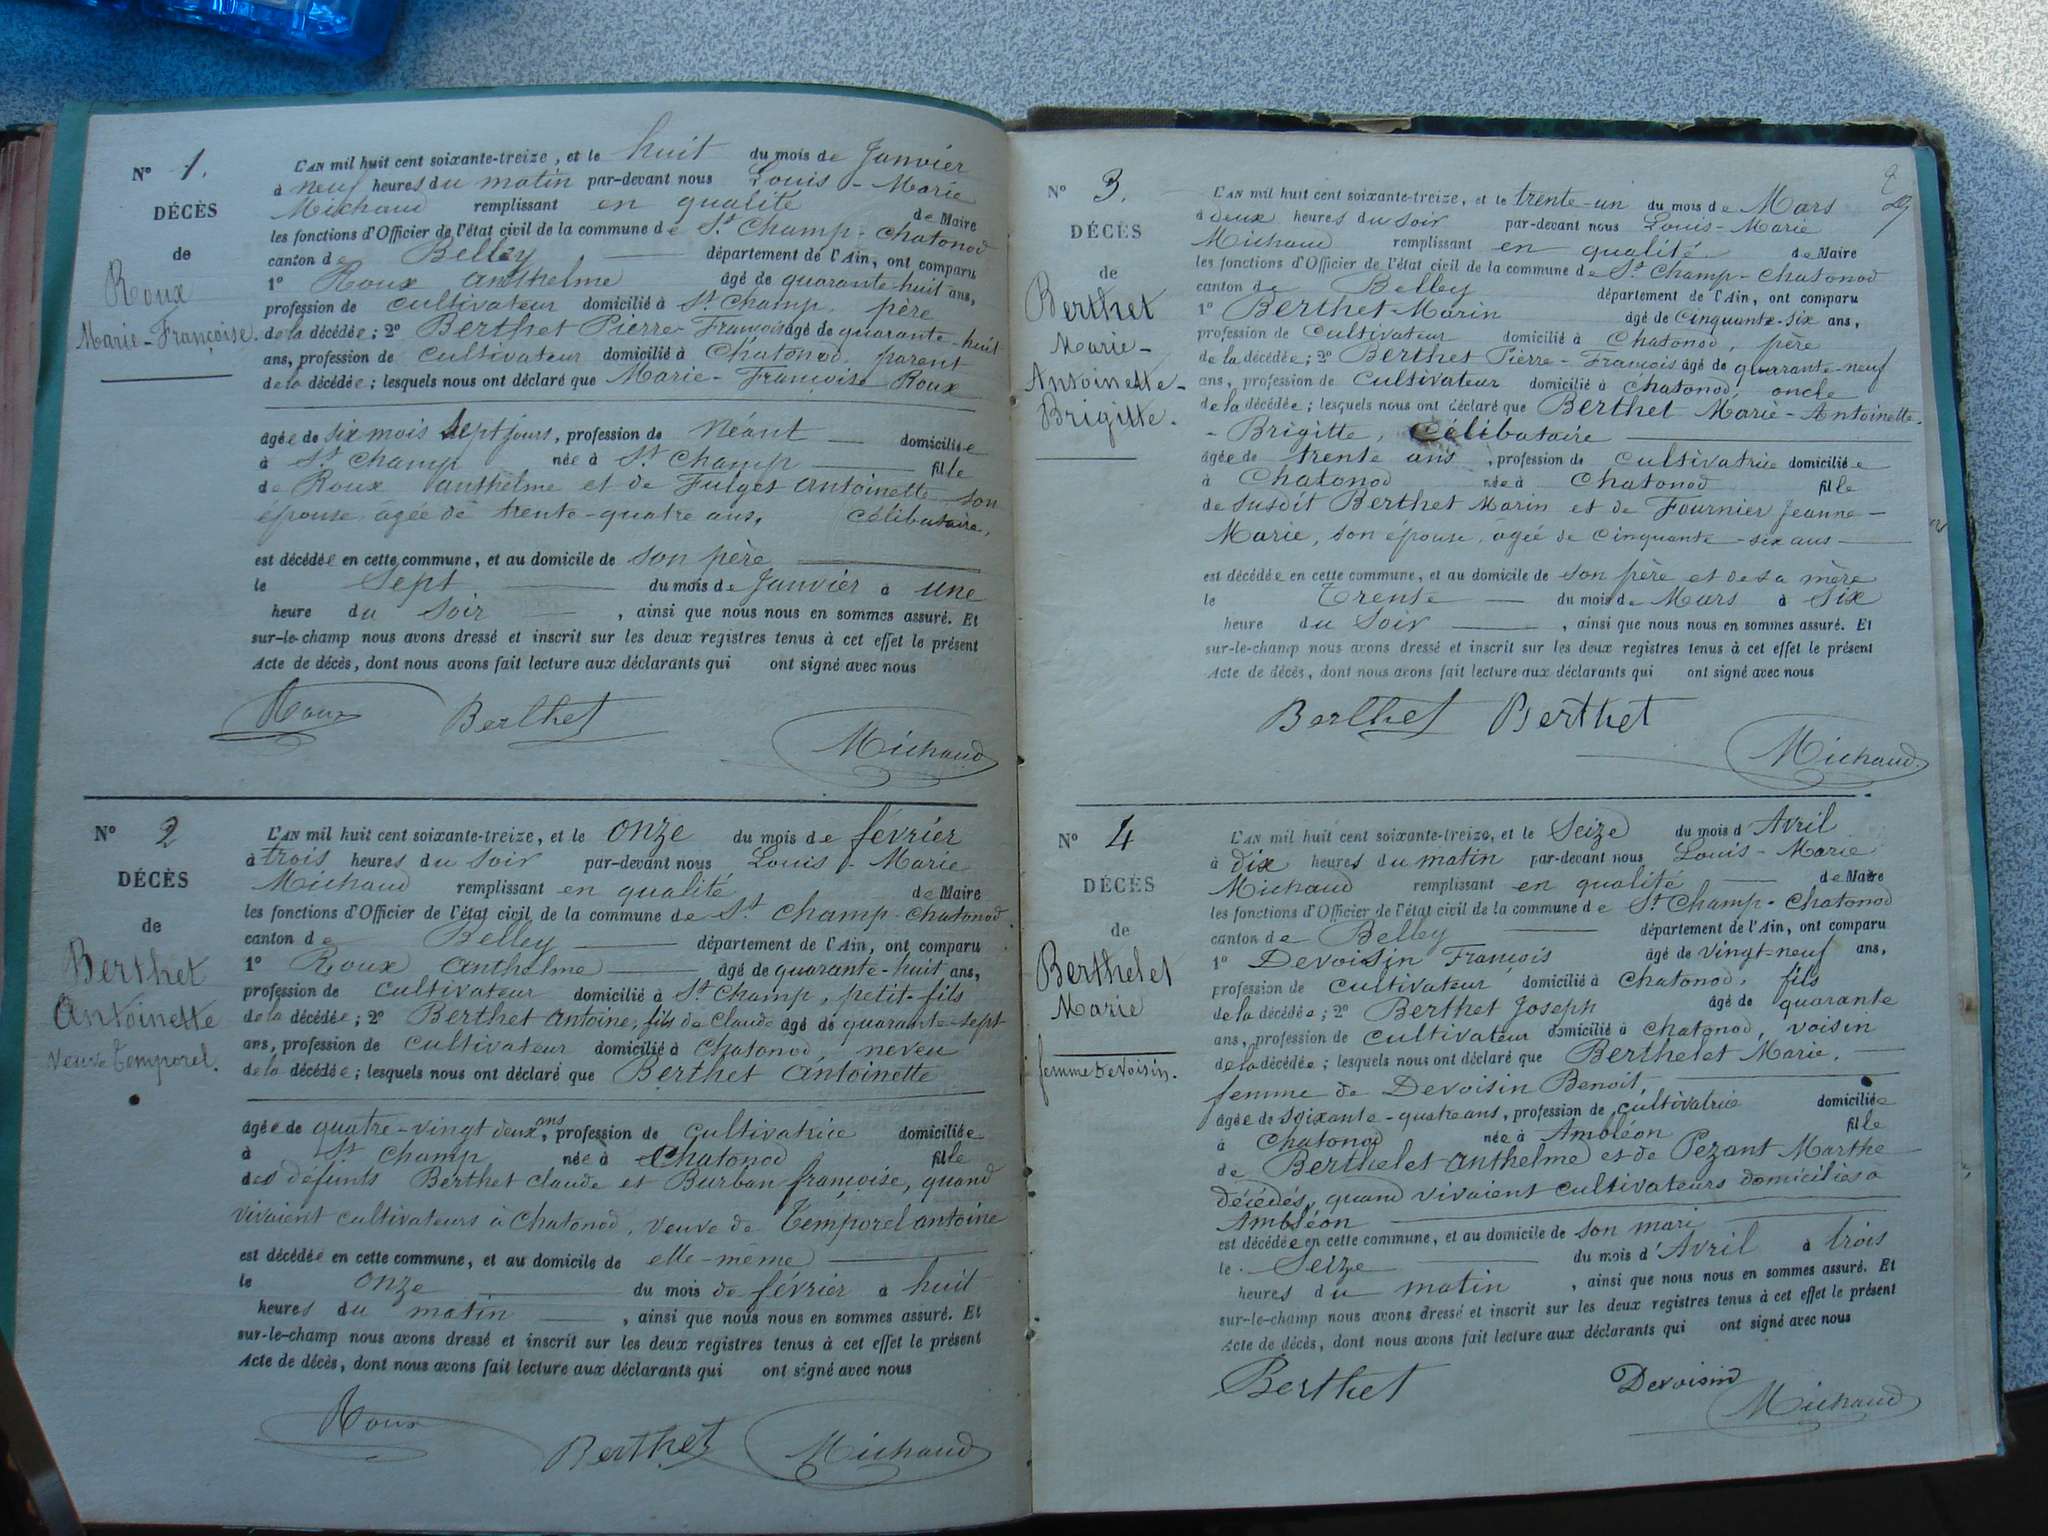 N° 1.
DÉCÈS
de
Roux
Marie-Françoise.
L'AN mil huit cent soixante-treize, et le huit du mois de Janvier
à neuf heures du matin par-devant nous Louis-Marie
Michaud remplissant en qualité de Maire
les fonctions d'Officier de l'état civil de la commune de St Champ-Chatonod
canton de Belley département de l'Ain, ont comparu
1° Roux Anthelme âgé de quarante-huit ans,
profession de cultivateur domicilié à St Champ, père
de la décédée; 2° Berthet Pierre-François âgé de quarante-huit
ans, profession de cultivateur domicilié à Chatonod, parent
de la décédée; lesquels nous ont déclaré que Marie-Françoise Roux
âgée de six mois sept jours, profession de Néant domiciliée
à St Champ née à St Champ fille
de Roux Anthelme et de Fulges Antoinette son
épouse âgée de trente-quatre ans, célibataire,
est décédée en cette commune, et au domicile de son père
le Sept du mois de Janvier à une
heure du soir, ainsi que nous nous en sommes assuré. Et
sur-le-champ nous avons dressé et inscrit sur les deux registres tenus à cet effet le présent
Acte de décès, dont nous avons fait lecture aux déclarants qui ont signé avec nous
Roux Berthet
Michaud
N° 2
DÉCÈS
de
Berthet
Antoinette
veuve Temporel.
L'AN mil huit cent soixante-treize, et le onze du mois de février
à trois heures du soir par-devant nous Louis-Marie
Michaud remplissant en qualité de Maire
les fonctions d'Officier de l'état civil de la commune de St Champ-Chatonod
canton de Belley département de l'Ain, ont comparu
1° Roux Anthelme âgé de quarante-huit ans,
profession de cultivateur domicilié à St Champ, petit-fils
de la décédée; 2° Berthet Antoine, fils de Claude âgé de quarante-sept
ans, profession de cultivateur domicilié à Chatonod, neveu
de la décédée; lesquels nous ont déclaré que Berthet Antoinette
âgée de quatre-vingt deux ans, profession de cultivatrice domiciliée
à St Champ née à Chatonod fille
des défunts Berthet Claude et Burban françoise, quand
vivaient cultivateurs à Chatonod, veuve de Temporel Antoine
est décédée en cette commune, et au domicile de elle-même
le onze du mois de février à huit
heures du matin, ainsi que nous nous en sommes assuré. Et
sur-le-champ nous avons dressé et inscrit sur les deux registres tenus à cet effet le présent
Acte de décès, dont nous avons fait lecture aux déclarants qui ont signé avec nous
Roux
Berthet Michaud
2
N° 3.
DÉCÈS
de
Berthet
Marie-
Antoinette-
Brigitte.
L'AN mil huit cent soixante-treize, et le trente-un du mois de Mars
à deux heures du soir par-devant nous Louis-Marie
Michaud remplissant en qualité de Maire
les fonctions d'Officier de l'état civil de la commune de St Champ-Chatonod
canton de Belley département de l'Ain, ont comparu
1° Berthet Marin âgé de cinquante-six ans,
profession de cultivateur domicilié à Chatonod, père
de la décédée; 2° Berthet Pierre-François âgé de quarante-neuf
ans, profession de cultivateur domicilié à Chatonod, oncle
de la décédée; lesquels nous ont déclaré que Berthet Marie-Antoinette-
-Brigitte, célibataire
âgée de trente ans, profession de cultivatrice domiciliée
à Chatonod née à Chatonod fille
de susdit Berthet Marin et de Fournier Jeanne-
Marie, son épouse, âgée de cinquante-six ans
est décédée en cette commune, et au domicile de son père et de sa mère
le Trente du mois de Mars à Six
heure du Soir, ainsi que nous nous en sommes assuré. Et
sur-le-champ nous avons dressé et inscrit sur les deux registres tenus à cet effet le présent
Acte de décès, dont nous avons fait lecture aux déclarants qui ont signé avec nous
Berthet Berthet
Michaud
N° 4
DÉCÈS
de
Berthelet
Marie
femme Devoisin.
L'AN mil huit cent soixante-treize, et le Seize du mois d'Avril
à dix heures du matin par-devant nous Louis-Marie
Michaud remplissant en qualité de Maire
les fonctions d'Officier de l'état civil de la commune de St Champ-Chatonod
canton de Belley département de l'Ain, ont comparu
1° Devoisin François âgé de vingt-neuf ans,
profession de cultivateur domicilié à Chatonod, fils
de la décédée; 2° Berthet Joseph âgé de quarante
ans, profession de cultivateur domicilié à Chatonod, voisin
de la décédée; lesquels nous ont déclaré que Berthelet Marie,
femme de Devoisin Benoit,
âgée de soixante-quatre ans, profession de cultivatrice domiciliée
à Chatonod née à Ambléon fille
de Berthelet Anthelme et de Pezant Marthe
décédés, quand vivaient cultivateurs domiciliés à
Ambléon
est décédée en cette commune, et au domicile de son mari
le Seize du mois d'Avril à trois
heures du matin, ainsi que nous nous en sommes assuré. Et
sur-le-champ nous avons dressé et inscrit sur les deux registres tenus à cet effet le présent
Acte de décès, dont nous avons fait lecture aux déclarants qui ont signé avec nous
Berthet Devoisin
Michaud